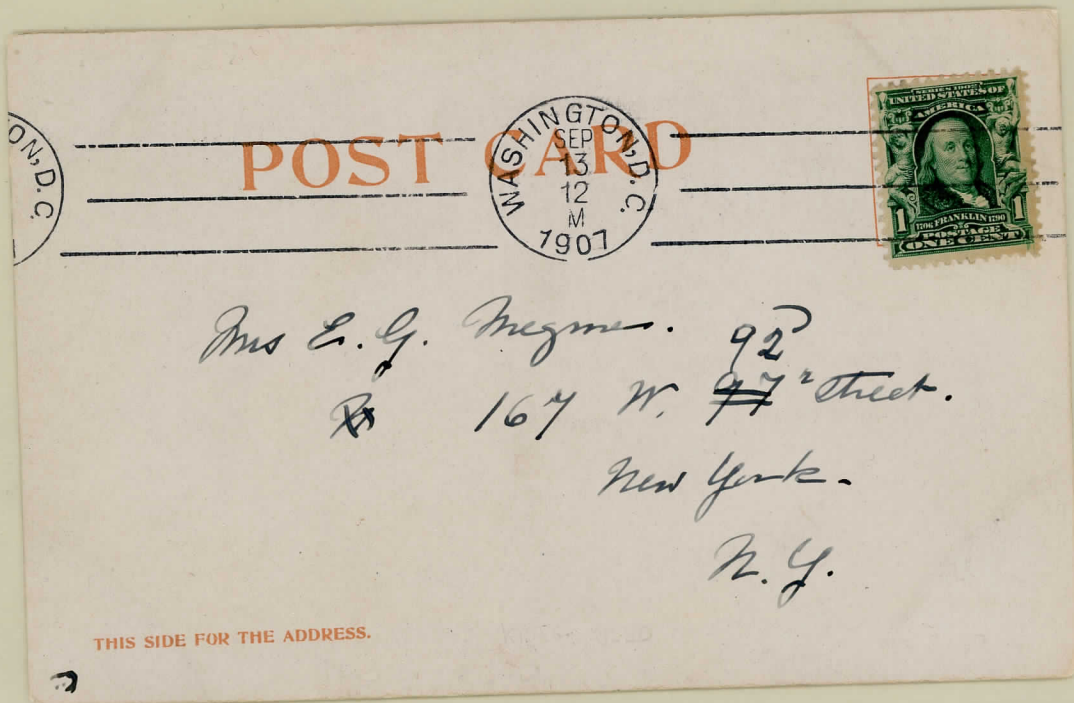 POST CARD
ON, D.C.
WASHINGTON, D.C.
SEP
13
12
M
1907
SERIES 1902
UNITED STATES OF
AMERICA
1 1706 FRANKLIN 1790 1
POSTAGE
ONE CENT
Mrs E. G.
92
167 W. 97 Street.
New York.
N. Y.
THIS SIDE FOR THE ADDRESS.